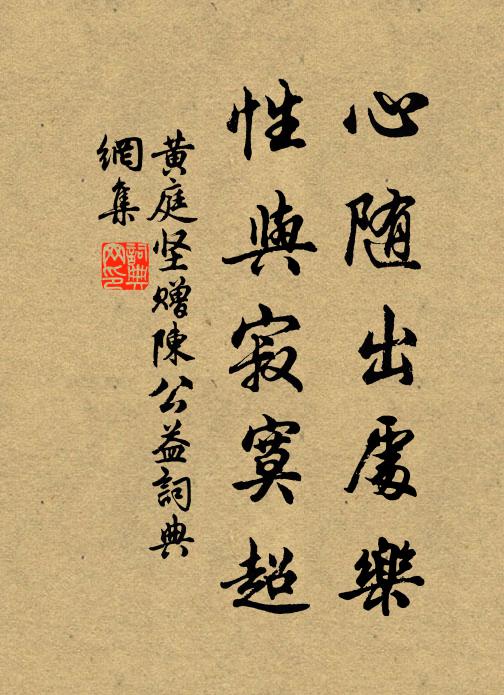 心随出處樂
性與寂寞超
黄庭坚赠陳公益詞典
網集
詞典网印